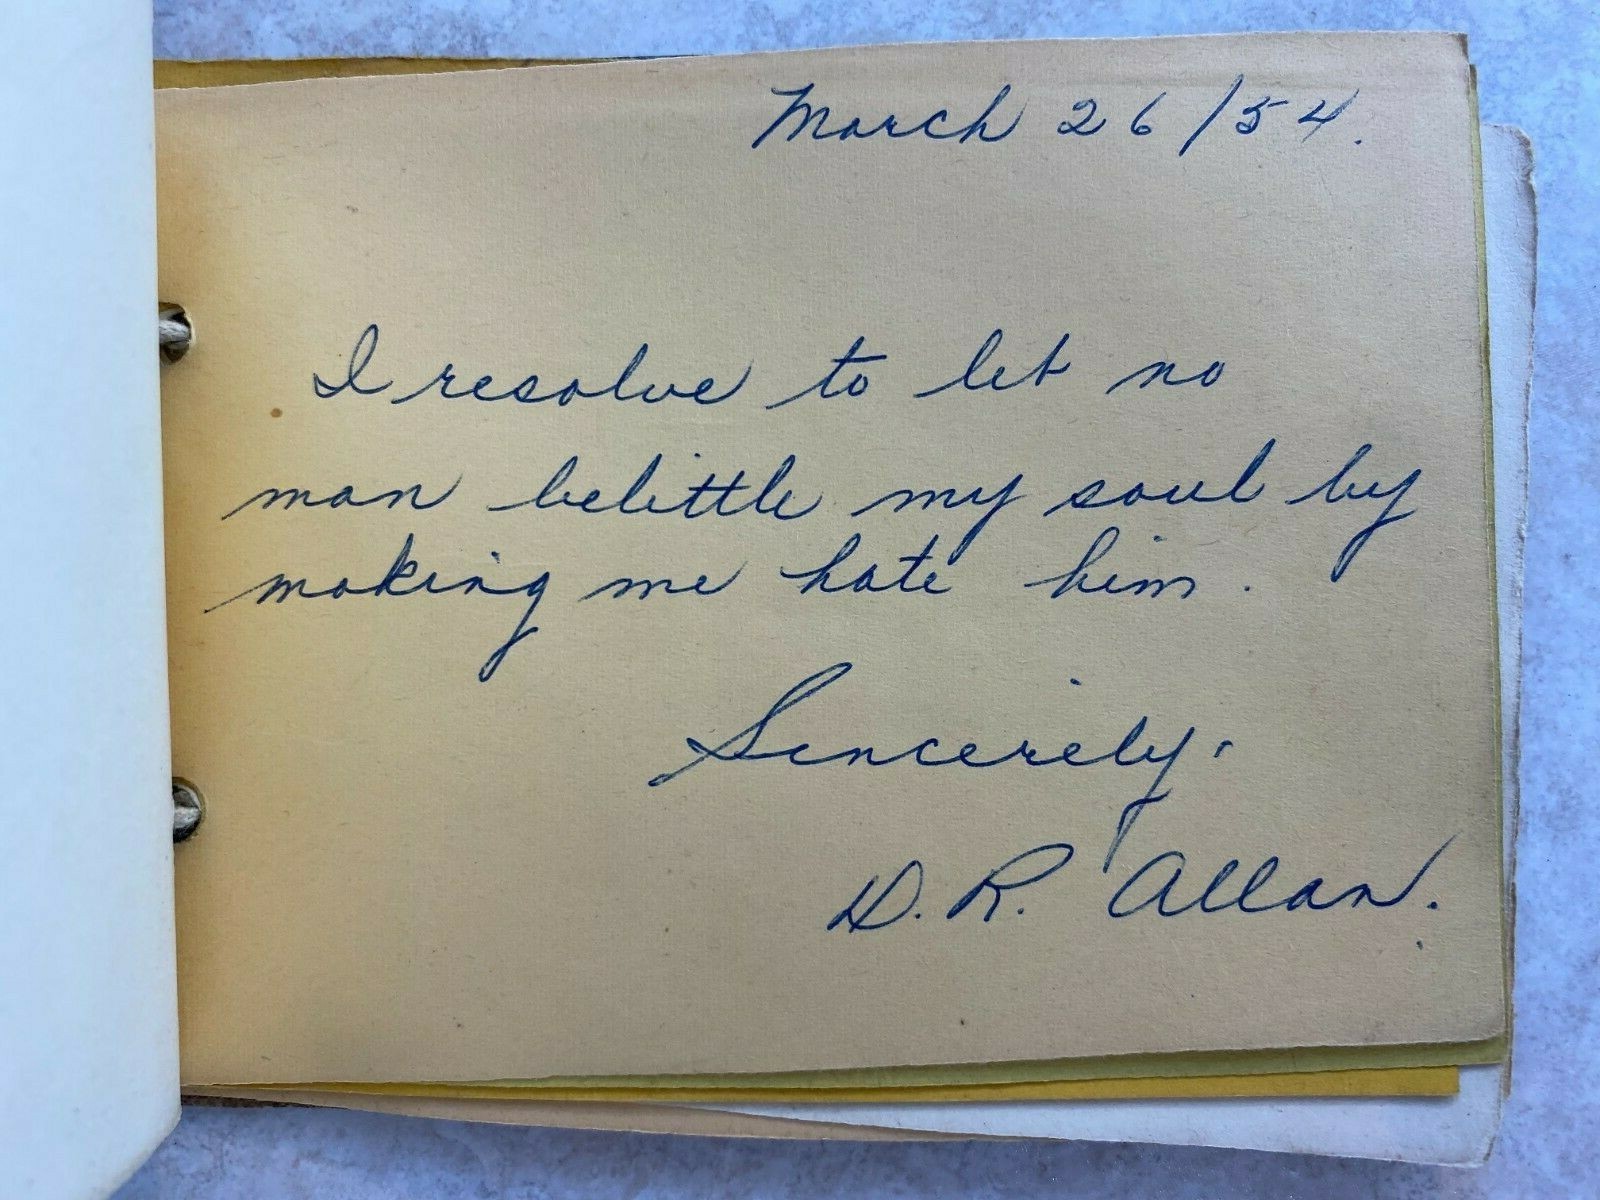 March 26/54.
I resolve to let no
man belittle my soul by
making me hate him.
Sincerely.
D. R. Allan.